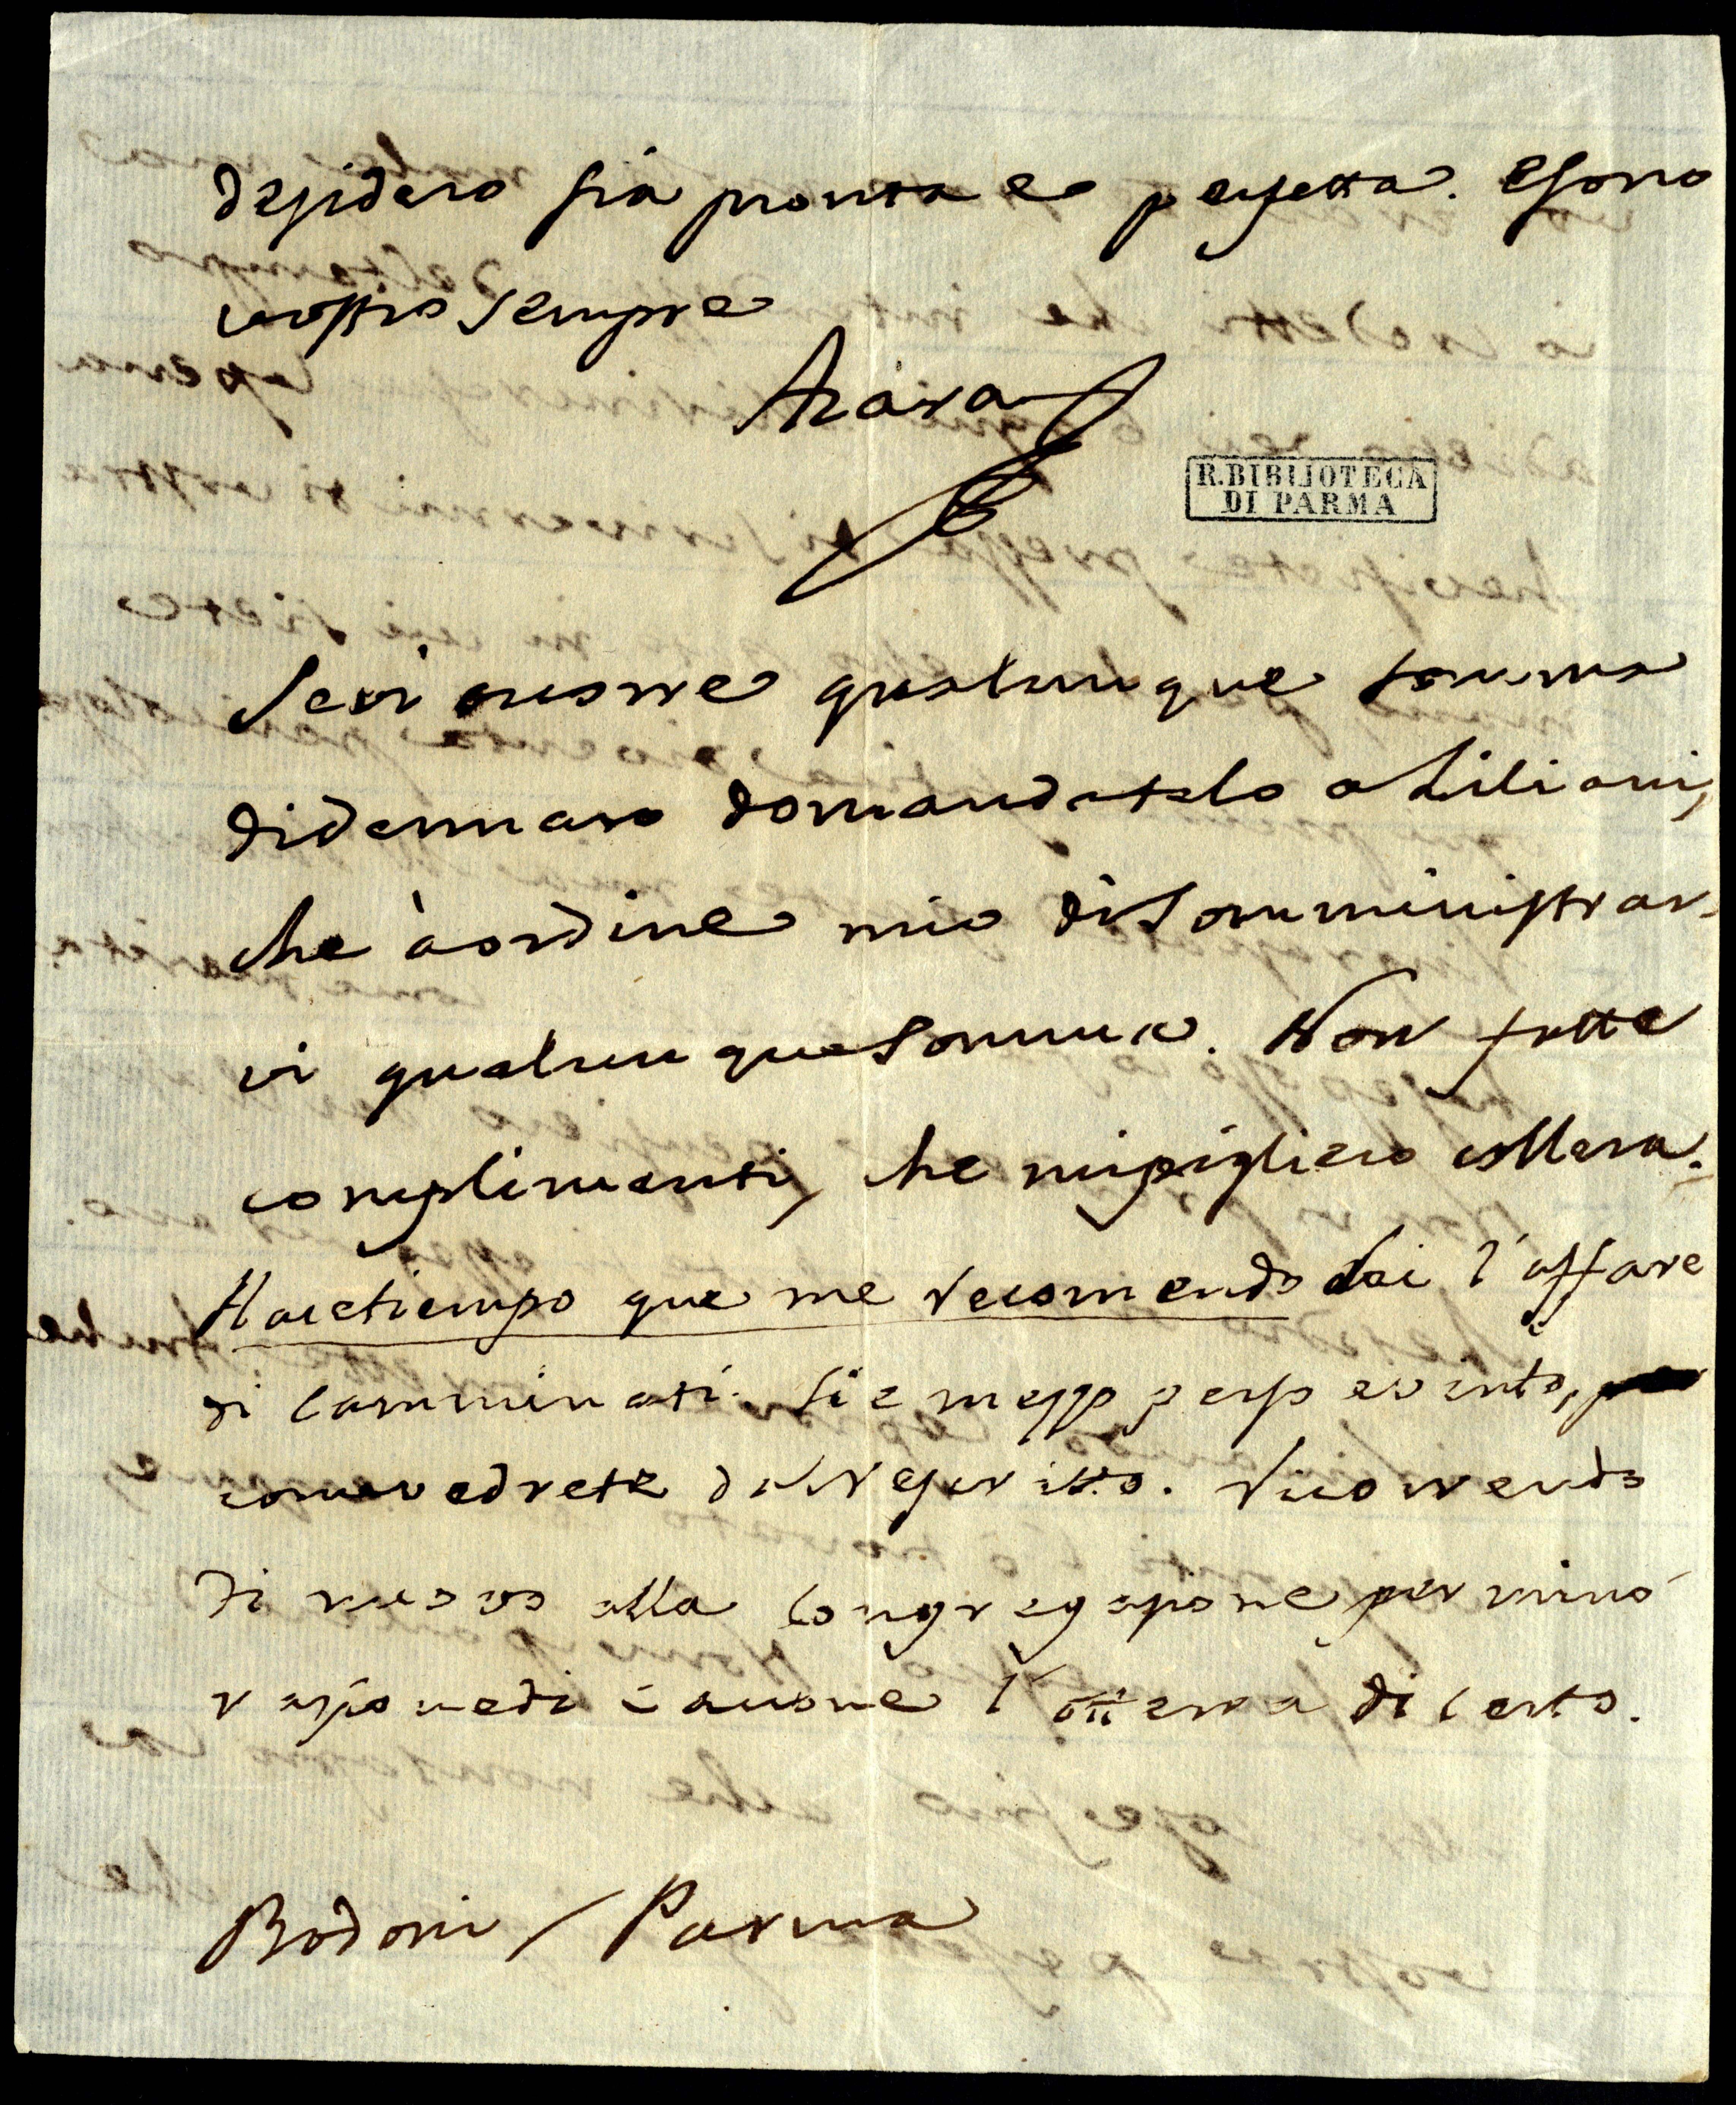 desidero sia pronta e perfetta. E sono
vostro sempre
Azara
R. BIBLIOTECA
DI PARMA
Se vi occorre qualunque somma
di dennaro domandatelo a Liliani,
che à ordine mio di somministrar-
vi qualunque somma. Non fatte
complimenti, che mi piglierò collera.
Hace tiempo que me recomendo Loi l'affare
di Camminati. Si è mezzo perso e vinto,
come vedrete dal rescritto. Ricorrendo
di nuovo alla Congregazione per minò
razione di canone l'otterrà di certo.
Bodoni / Parma